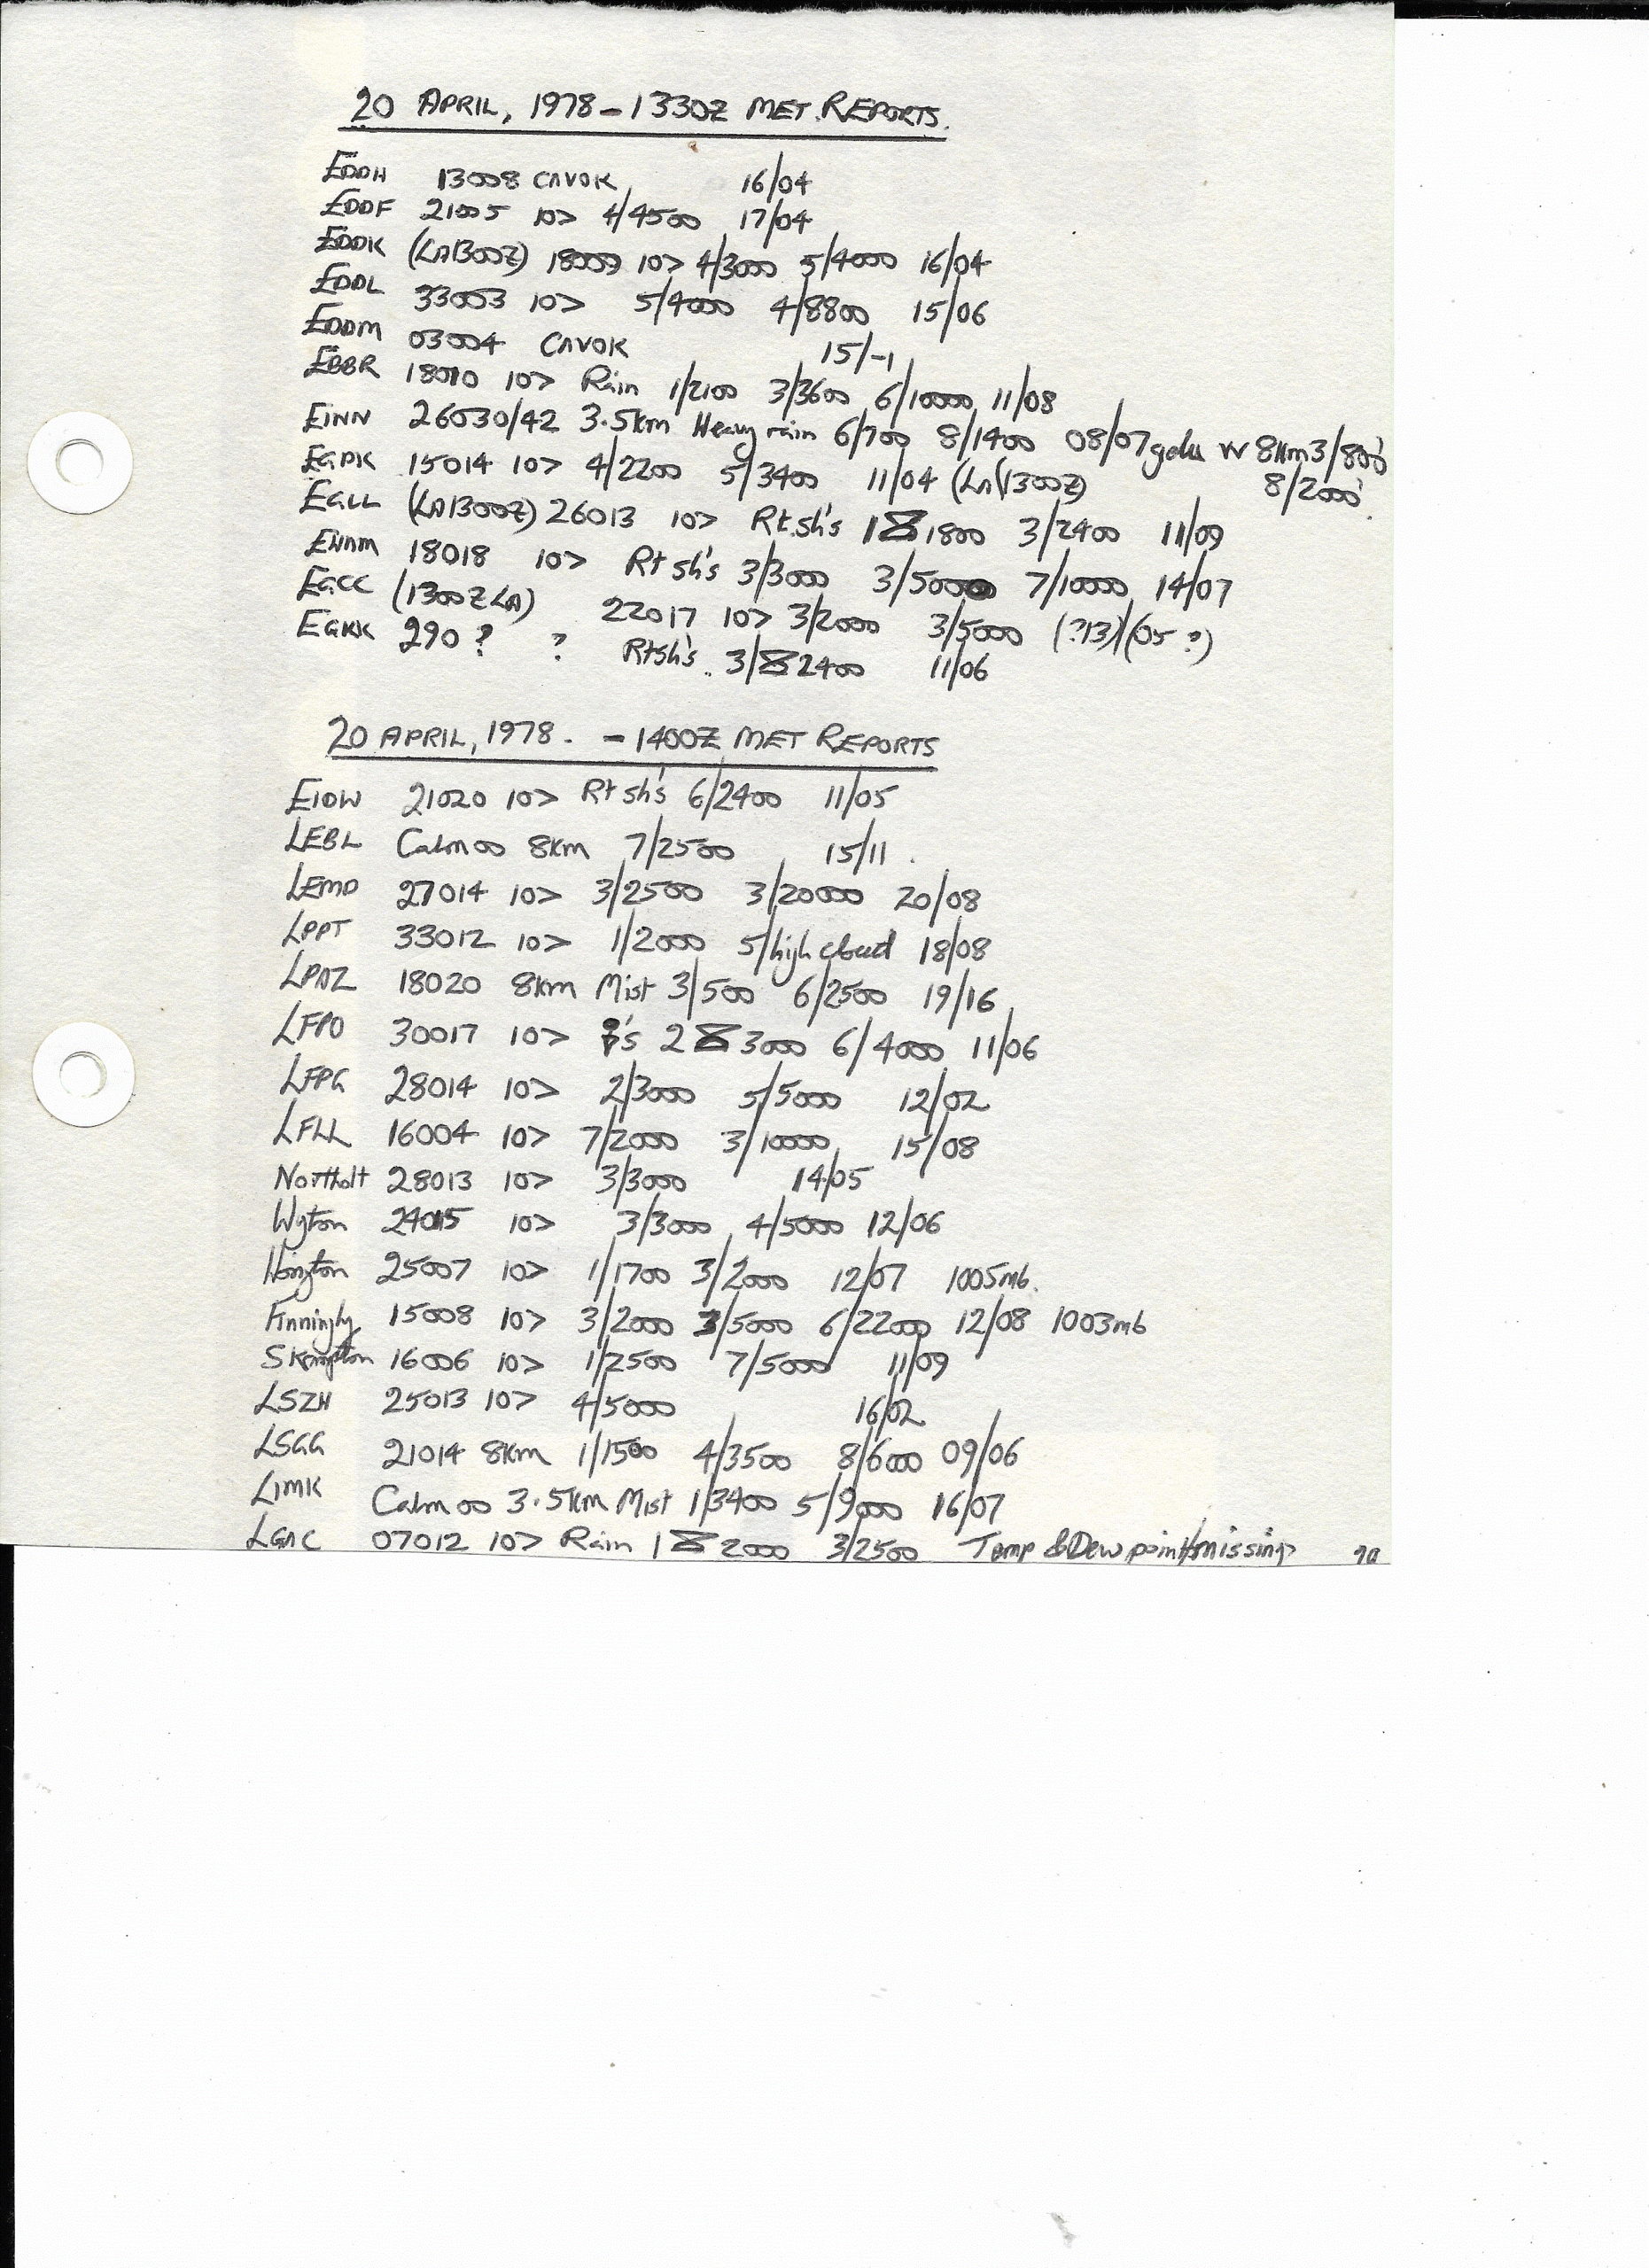 20 APRIL, 1978 - 1330Z MET. REPORTS.
EDDH 13008 CAVOK 16/04
EDDF 21005 10> 4/4500 17/04
EDDK (LA1300Z) 18009 10> 4/3000 5/4000 16/04
EDDL 33003 10> 5/4000 4/8800 15/06
EDDM 03004 CAVOK 15/-1
EBBR 18010 10> Rain 1/2100 3/3600 6/10000 11/08
EINN 26030/42 3.5km Heavy rain 6/700 8/1400 08/07 gradu W 8km 3/800'
8/2000'
EGPK 15014 10> 4/2200 5/3400 11/04 (LA(1300Z)
EGLL (LA1300Z) 26013 10> Rt.sh's 1 1800 3/2400 11/09
EHAM 18018 10> Rt sh's 3/3000 3/5000 7/10000 14/07
EGCC (1300Z LA) 22017 10> 3/2000 3/5000 (?13)/(05 ?)
EGKK 290 ? ? Rtsh's. 3/ 2400 11/06
20 APRIL, 1978. - 1400Z MET REPORTS
EIDW 21020 10> Rt sh's 6/2400 11/05
LEBL Calm 00 8km 7/2500 15/11.
LEMD 27014 10> 3/2500 3/20000 20/08
LPPT 33012 10> 1/2000 5/high cloud 18/08
LPAZ 18020 8km Mist 3/500 6/2500 19/16
LFPO 30017 10> 's 2 3000 6/4000 11/06
LFPG 28014 10> 2/3000 5/5000 12/02
LFLL 16004 10> 7/2000 3/10000 15/08
Northolt 28013 10> 3/3000 14/05
Wyton 24015 10> 3/3000 4/5000 12/06
Honington 25007 10> 1/1700 3/2000 12/07 1005mb.
Finningly 15008 10> 3/2000 3/5000 6/22000 12/08 1003mb
Skampton 16006 10> 1/2500 7/5000 11/09
LSZH 25013 10> 4/5000 16/02
LSGG 21014 8km 1/1500 4/3500 8/6000 09/06
LIMK Calm 00 3.5km Mist 1/3400 5/9000 16/07
LGAC 07012 10> Rain 1 2000 3/2500 Temp & Dew point/missing